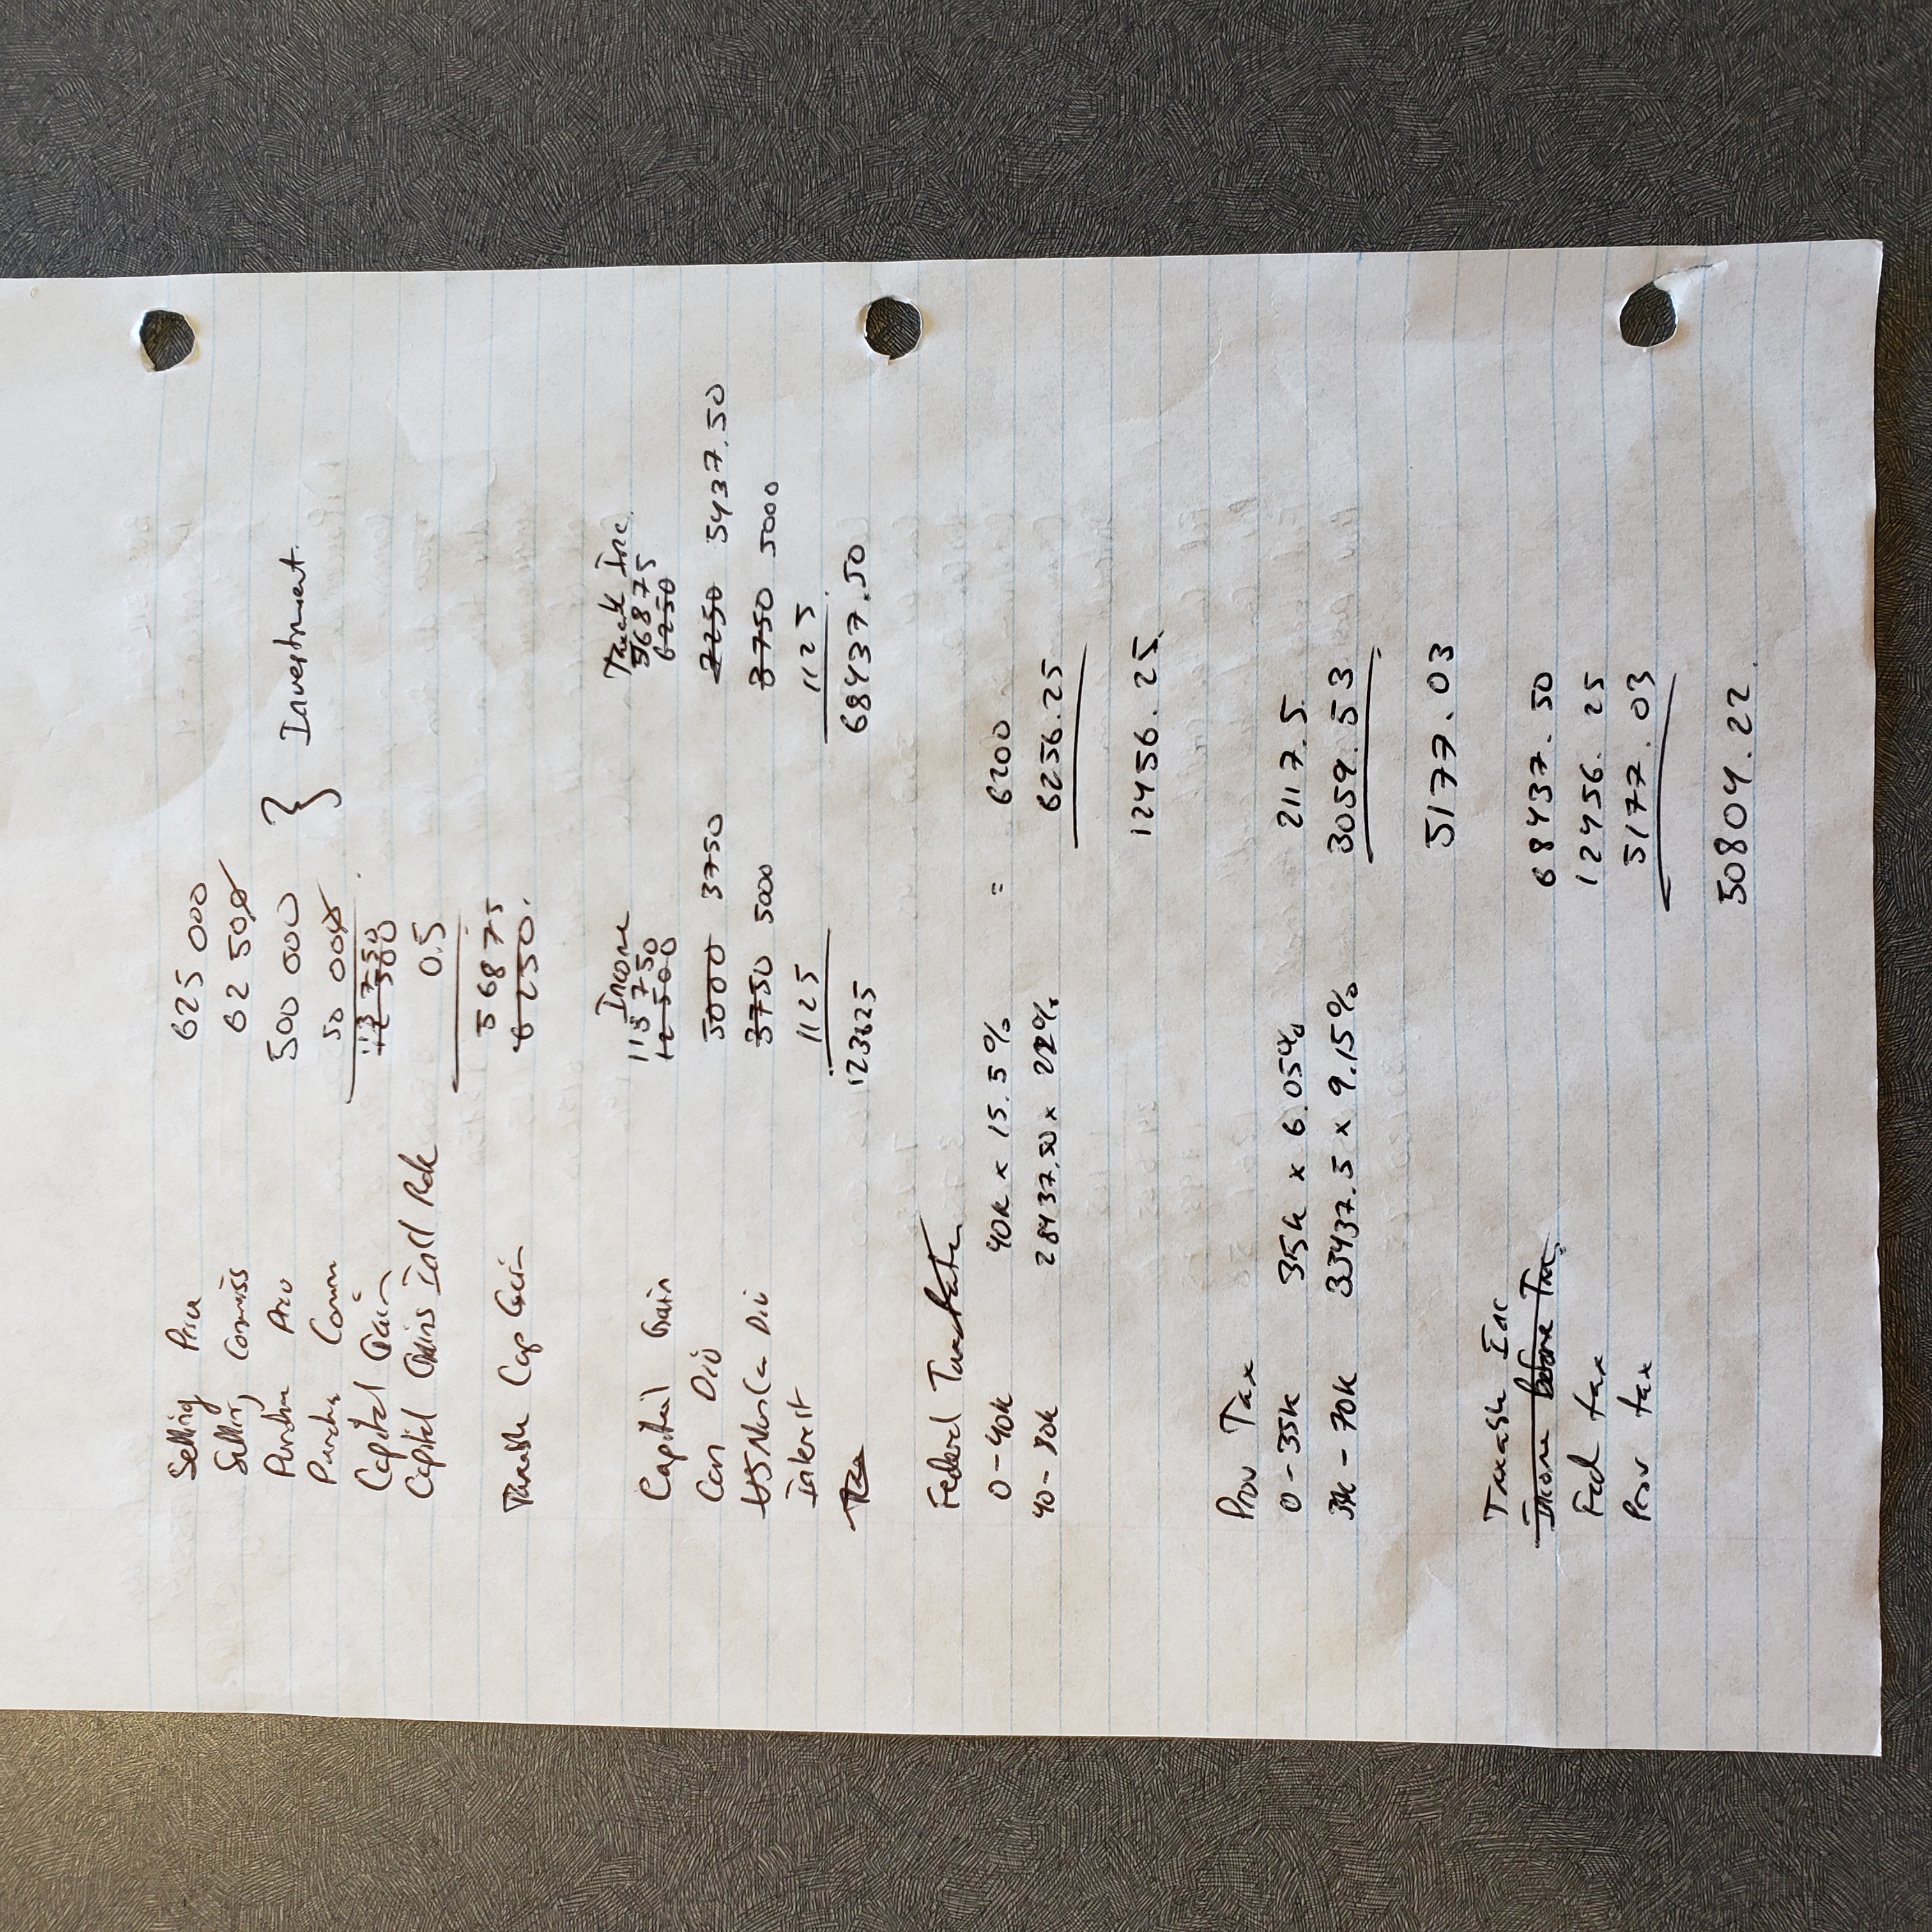 Selling Price 625 000
Selling Commiss 62 500
Purcha Price 500 000 } Investment.
Purcha Comm 50 000
Capital Gain 12 500 113 750
Capital Gains Incl Rate 0.5
56875
Taxable Cap Gain 6250.
Income Taxable Inc.
113 750 56875
Capital Gain 12 500 6250
Can Div 5000 3750 7250 5437.50
US Non Ca Div 3750 5000 3750 5000
Interest 1125 1125
123625 68437.50
Federal Tax Rates
0-40k 40k x 15.5% = 6200
40-80k 28437.50 x 22% 6256.25
12456.25
Prov Tax
0-35k 35k x 6.05% 2117.5
35k-70k 33437.5 x 9.15% 3059.53
5177.03
Taxable Inc
Income before Tax 68437.50
Fed tax 12456.25
Prov tax 5177.03
50804.22